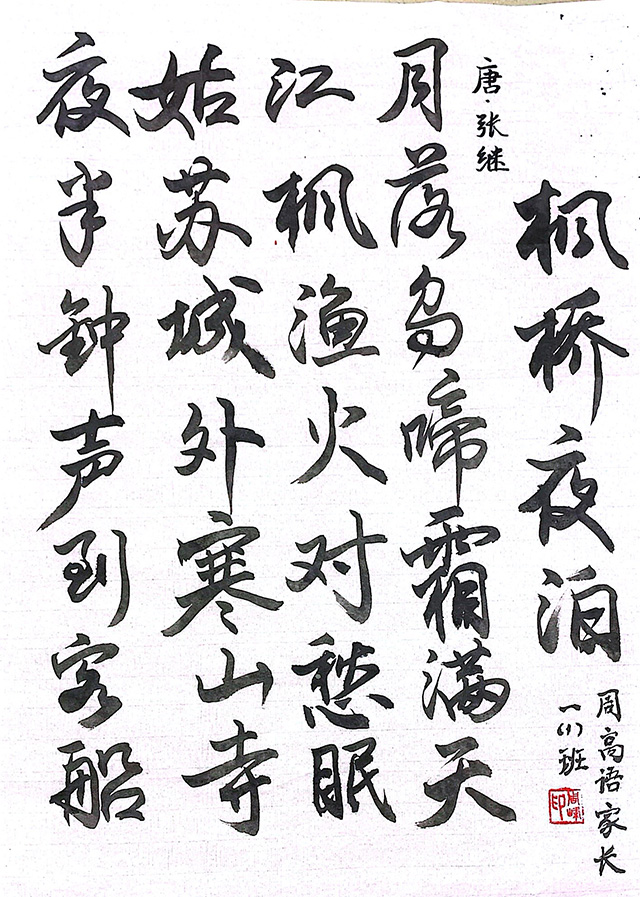 枫桥夜泊
周高语家长
一(1)班
唐·张继
月落乌啼霜满天
江枫渔火对愁眠
姑苏城外寒山寺
夜半钟声到客船